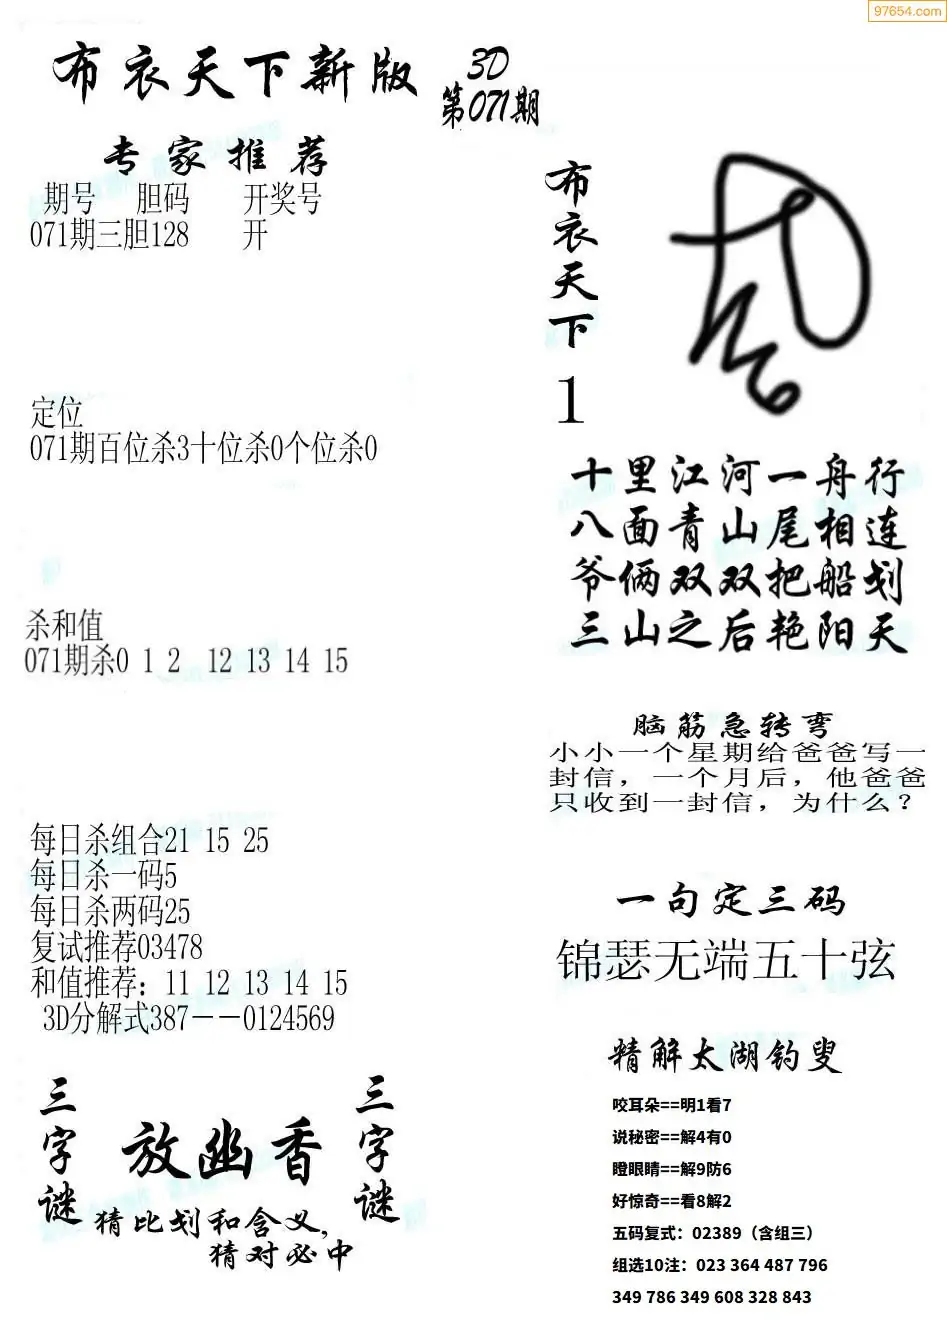 97654.com
布衣天下新版
3D
第071期
专家推荐
期号 胆码 开奖号
071期三胆128 开
定位
071期百位杀3十位杀0个位杀0
杀和值
071期杀0 1 2 12 13 14 15
每日杀组合21 15 25
每日杀一码5
每日杀两码25
复试推荐03478
和值推荐：11 12 13 14 15
3D分解式387－－0124569
三字谜
放幽香
三字谜
猜比划和含义,
猜对必中
布衣天下
1
十里江河一舟行
八面青山尾相连
爷俩双双把船划
三山之后艳阳天
脑筋急转弯
小小一个星期给爸爸写一
封信，一个月后，他爸爸
只收到一封信，为什么？
一句定三码
锦瑟无端五十弦
精解太湖钓叟
咬耳朵==明1看7
说秘密==解4有0
瞪眼睛==解9防6
好惊奇==看8解2
五码复式：02389（含组三）
组选10注：023 364 487 796
349 786 349 608 328 843